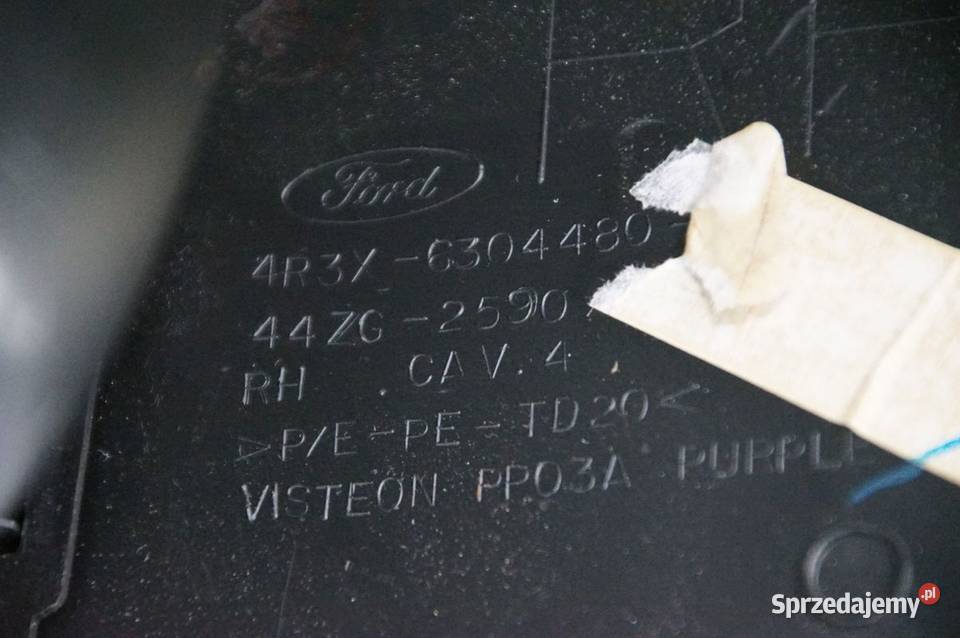 Ford
4R3X-6304480-
44ZG-2590
RH CAV. 4
>P/E-PE-TD20<
VISTEON PP03A PURPLE
Sprzedajemy.pl